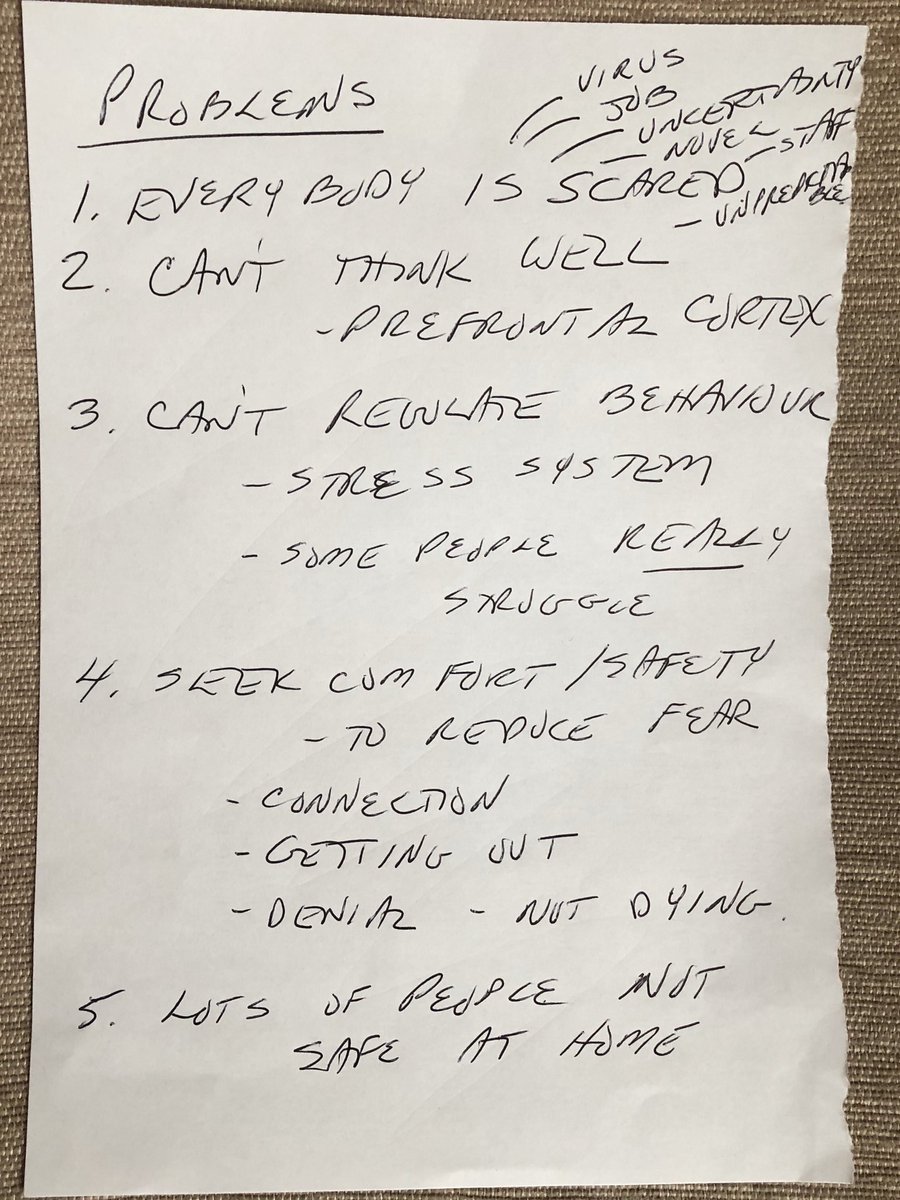 PROBLEMS
VIRUS
JOB
UNCERTAINTY
NOVEL - STAFF
1. EVERYBODY IS SCARED
- UNPREDICTABLE
2. CAN'T THINK WELL
- PREFRONTAL CORTEX
3. CAN'T REGULATE BEHAVIOUR
- STRESS SYSTEM
- SOME PEOPLE REALLY
STRUGGLE
4. SEEK COMFORT/SAFETY
- TO REDUCE FEAR
- CONNECTION
- GETTING OUT
- DENIAL - NOT DYING.
5. LOTS OF PEOPLE NOT
SAFE AT HOME